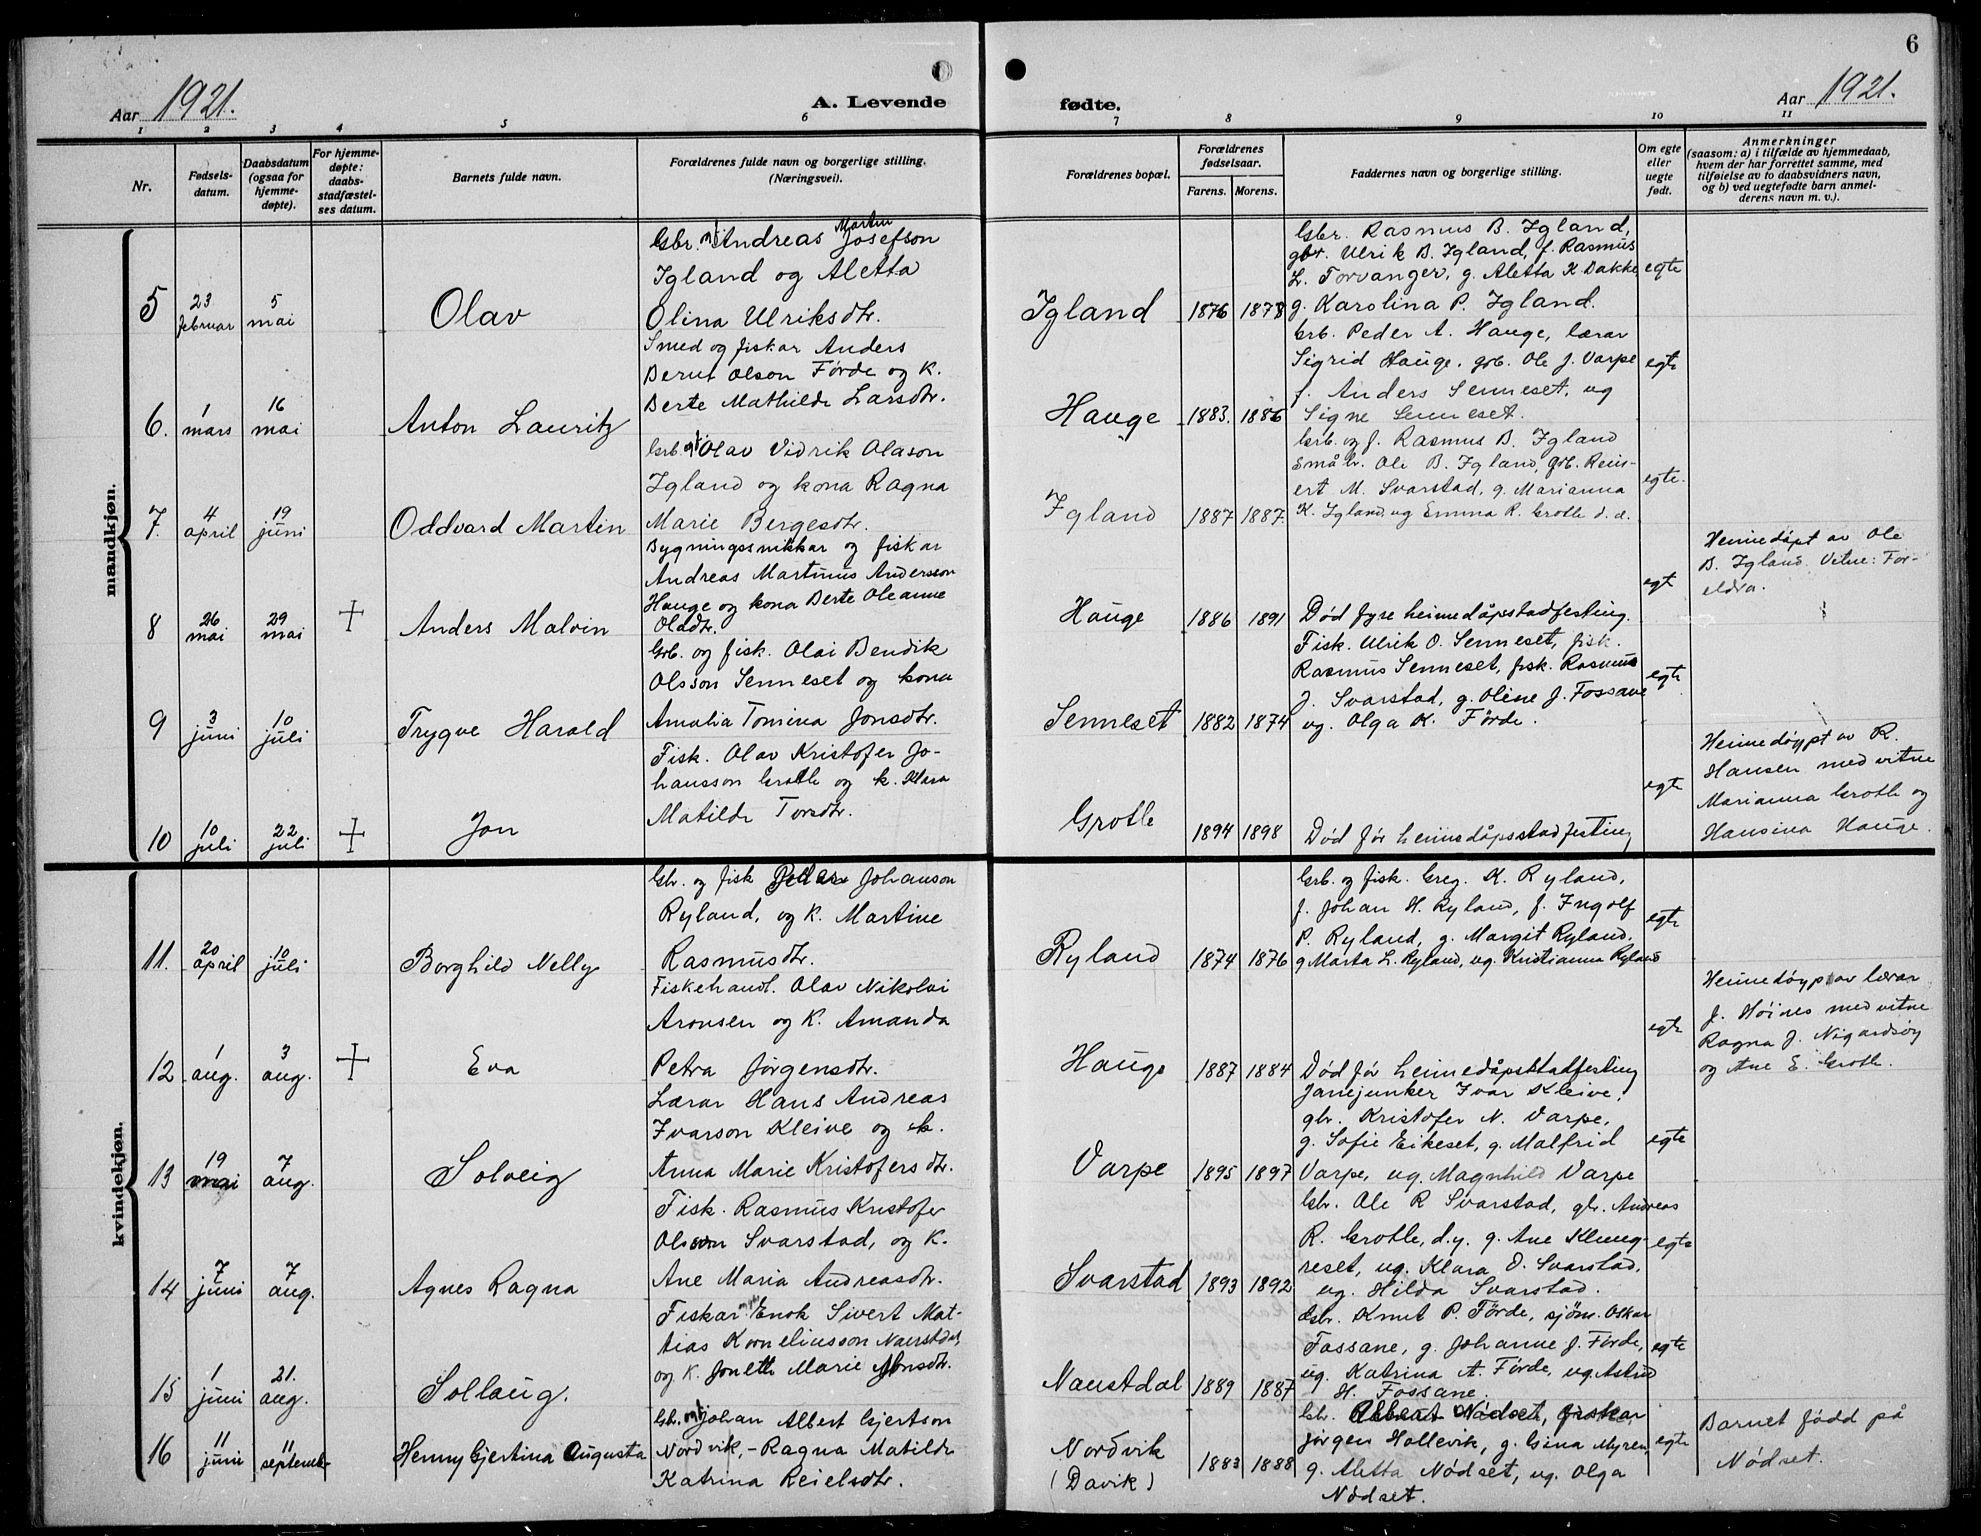 6
Aar 1921.
A. Levende
fødte.
Aar 1921.
1 2 3 4 5 6 7 8 9 10 11
Nr.
Fødsels-
datum.
Daabsdatum
(ogsaa for
hjemme-
døpte).
For hjemme-
døpte:
daabs-
stadfæstel-
ses datum.
Barnets fulde navn.
Forældrenes fulde navn og borgerlige stilling.
(Næringsvei).
Forældrenes bopæl.
Forældrenes
fødselsaar.
Farens. Morens.
Faddernes navn og borgerlige stilling.
Om egte
eller
uegte
født.
Anmerkninger
(saasom: a) i tilfælde av hjemmedaab,
hvem der har forrettet samme, med
tilføielse av to daabsvidners navn,
og b) ved uegtefødte barn anmel-
derens navn m. v.).
mandkjøn.
5
23
februar
5
mai
Olav
Martin
Gbr. Andreas Josefson
Igland og Aletta
Olina Ulriksdtr.
Igland
1876 1878
Gbr. Rasmus B. Igland,
gbr. Ulrik B. Igland, f. Rasmus
L. Torvanger, g. Aletta K Bakke
g. Karolina P. Igland.
egte
6.
1
mars
16
mai
Anton Lauritz
Smed og fiskar Anders
Bernt Olson Førde og k.
Berte Mathilde Larsdtr.
Hauge
1883. 1886
Grb. Peder A. Hauge, lærar
Sigrid Hauge, grb. Ole J. Varpe
f. Anders Senneset, ug
Signe Senneset.
egte
7.
4
april
19
juni
Oddvard Martin
Grb Olav Vidrik Olason
Igland og kona Ragna
Marie Bergesdtr.
Igland
1887 1887.
Grb. og f. Rasmus B. Igland
småbr. Ole B. Igland, grb. Rein-
ert M. Svarstad, g. Marianna
K. Igland, ug Emma R. Grotle d. e.
egte.
8
26
mai
29
mai
+
Anders Malvin
Bygningssnikkar og fiskar
Andreas Martinus Andersson
Hauge og kona Berte Oleanne
Oladtr.
Hauge
1886 1891
Død fyre heimedåpstadfesting.
egt
Heimedøpt av Ole
B. Igland. Vitne: For-
eldra.
9
3
juni
10
juli
Trygve Harald
Grb. og fisk. Olai Bendik
Olsson Senneset og kona
Amalia Tomina Jonsdtr.
Senneset
1882 1874
Fisk. Ulrik O. Senneset, fisk.
Rasmus Senneset, fisk. Rasmus
J. Svarstad, g. Oline J. Fossane
ug. Olga K. Førde.
egte
10
10
juli
22
juli
+
Jon
Fisk. Olav Kristofer Jo-
hansson Grotle og k. Klara
Matilde Torsdtr.
Grotle
1894 1898
Død før heimedåpsstadfesting
egte
Heimedøypt av R.
Hansen med vitne
Marianna Grotle og
Hansina Hauge.
kvindekjøn.
11.
20
april
10
juli
Borghild Nelly
Gbr. og fisk Peder Johanson
Ryland, og k. Martine
Rasmusdtr.
Ryland
1874 1876
Grb. og fisk. Greg. K. Ryland,
f. Johan H. Ryland, f. Ingolf
P. Ryland, g. Margit Ryland.
g Marta L. Ryland, ug. Kristianna Ryland
egte
12
1
aug.
3
aug.
+
Eva
Fiskehandl. Olav Nikolai
Aronsen og k. Amanda
Petra Jørgensdtr.
Hauge
1887 1884
Død før heimedåpsstadfesting
egte
Heimedøypt av lærar
J. Høines med vitne
Ragna J. Nigardsøy
og Ane E. Grotle.
13
19
mai
7
aug.
Solveig
Lærar Hans Andreas
Ivarson Kleive og k.
Anna Marie Kristofersdtr.
Varpe
1895 1897
Fanejunker Ivar Kleive,
gbr. Kristofer N. Varpe,
g. Sofie Eikeset, g. Malfrid
Varpe, ug. Magnhild Varpe
egte
14
7
juni
7
aug.
Agnes Ragna
Fisk. Rasmus Kristofer
Olsson Svarstad, og k.
Ane Maria Andreasdtr.
Svarstad
1893 1892
Gbr. Ole R Svarstad, gbr. Andreas
R. Grotle, d.y. g. Ane Kling-
reset, ug. Klara O. Svarstad,
ug. Hilda Svarstad.
egte
15
1
juni
21.
aug.
Sollaug.
Fiskar Enok Sivert Mat-
tias Korneliusson Naustdal,
og k. Jonette Marie Jonsdtr.
Naustdal
1889 1887
Gbr. Knut P. Førde, sjøm. Oskar
Fossane, g. Johanne J. Førde,
ug. Katrina A. Førde, ug. Astrid
H. Fossane.
egte
16
11
juni
11
septemb
Henny Gjertina Augusta
Gbr. Johan Albert Gjertson
Nordvik, - Ragna Matilde
Katrina Reielsdtr.
Nordvik
(Davik)
1883 1888
Gbr. Albert Nødset, fiskar
Jørgen Hollevik, g. Gina Myren,
g. Aletta Nødset, ug. Olga
Nødset.
egte
Barnet fødd på
Nødset.